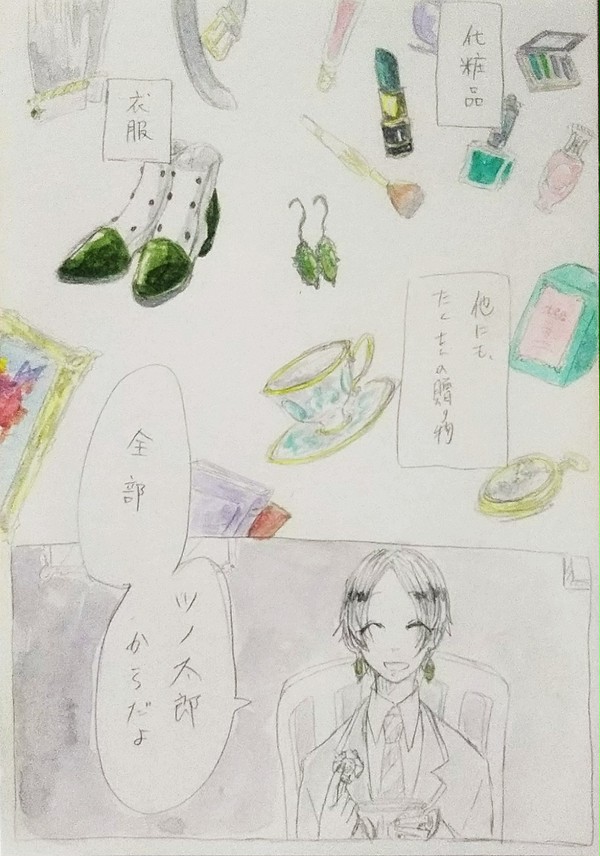 化粧品
衣服
他にも、
たくさんの贈り物
全部
ツノ太郎
からだよ